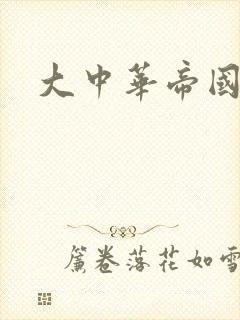 大中華帝國
簾卷落花如雪